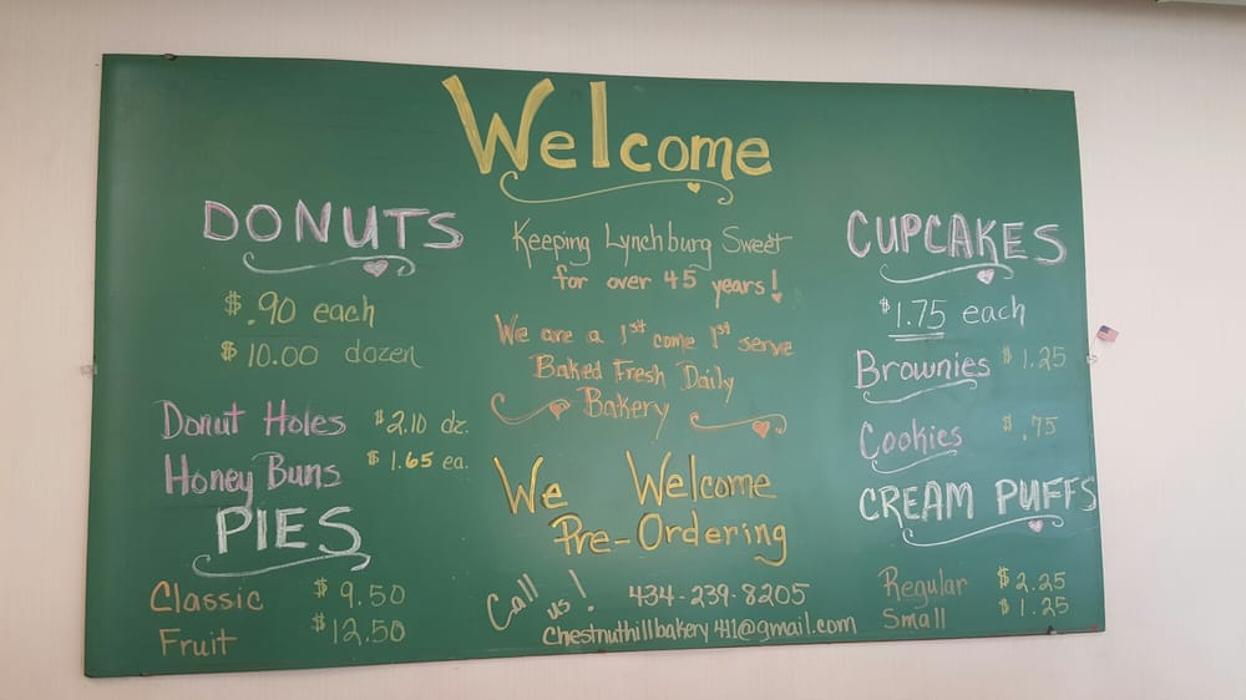 Welcome
DONUTS
$.90 each
$10.00 dozen
Donut Holes $2.10 dz.
Honey Buns $1.65 ea.
PIES
Classic $9.50
Fruit $12.50
Keeping Lynchburg Sweet
for over 45 years!
We are a 1st come 1st serve
Baked Fresh Daily
Bakery
We Welcome
Pre-Ordering
Call us! 434-239-8205
Chestnuthillbakery411@gmail.com
CUPCAKES
$1.75 each
Brownies $1.25
Cookies $.75
CREAM PUFFS
Regular $2.25
Small $1.25